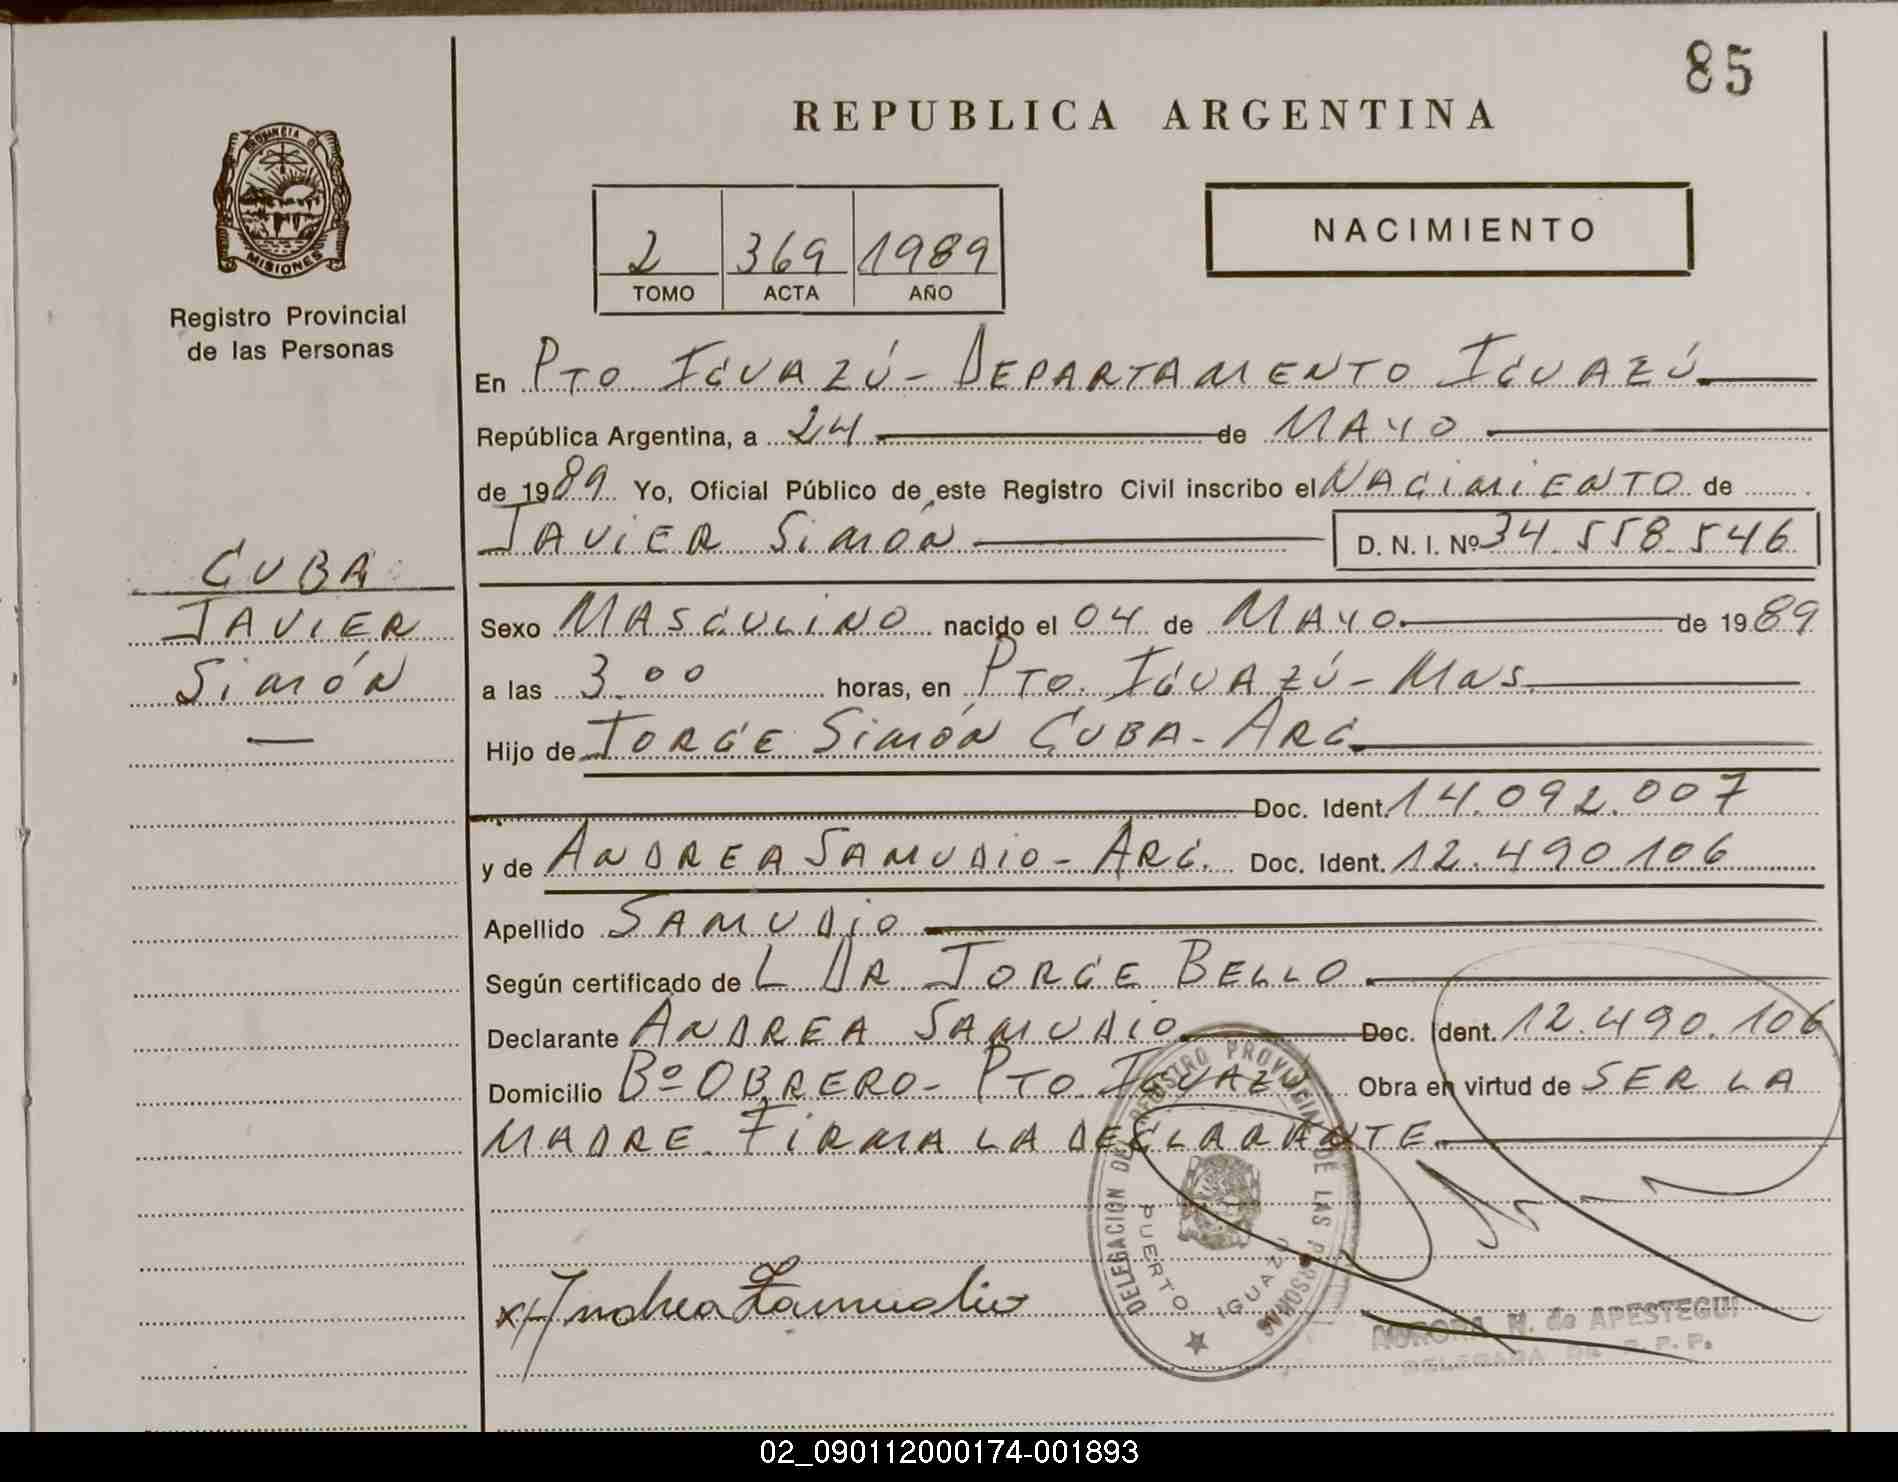 85
REPUBLICA ARGENTINA
PROVINCIA DE
MISIONES
Registro Provincial
de las Personas
NACIMIENTO
2 369 1989
TOMO ACTA AÑO
En PTO IGUAZÚ - DEPARTAMENTO IGUAZÚ
República Argentina, a 24 de MAYO
de 1989 Yo, Oficial Público de este Registro Civil inscribo el NACIMIENTO de
JAVIER SIMÓN D. N. I. Nº 34.558.546
CUBA
JAVIER
SIMÓN
Sexo MASCULINO nacido el 04 de MAYO de 1989
a las 3.00 horas, en PTO. IGUAZÚ - MNS
Hijo de JORGE SIMÓN CUBA - ARG.
Doc. Ident. 14.092.007
y de ANDREA SAMUDIO - ARG. Doc. Ident. 12.490.106
Apellido SAMUDIO
Según certificado de L DR JORGE BELLO
Declarante ANDREA SAMUDIO Doc. Ident. 12.490.106
Domicilio Bº OBRERO - PTO IGUAZÚ Obra en virtud de SER LA
MADRE. FIRMA LA DECLARANTE
DELEGACION DEL REGISTRO PROVINCIAL DE LAS PERSONAS
PUERTO IGUAZU
Andrea Samudio
AURORA N. de APESTEGUI
DELEGADA DE R. P. P.
02_090112000174-001893